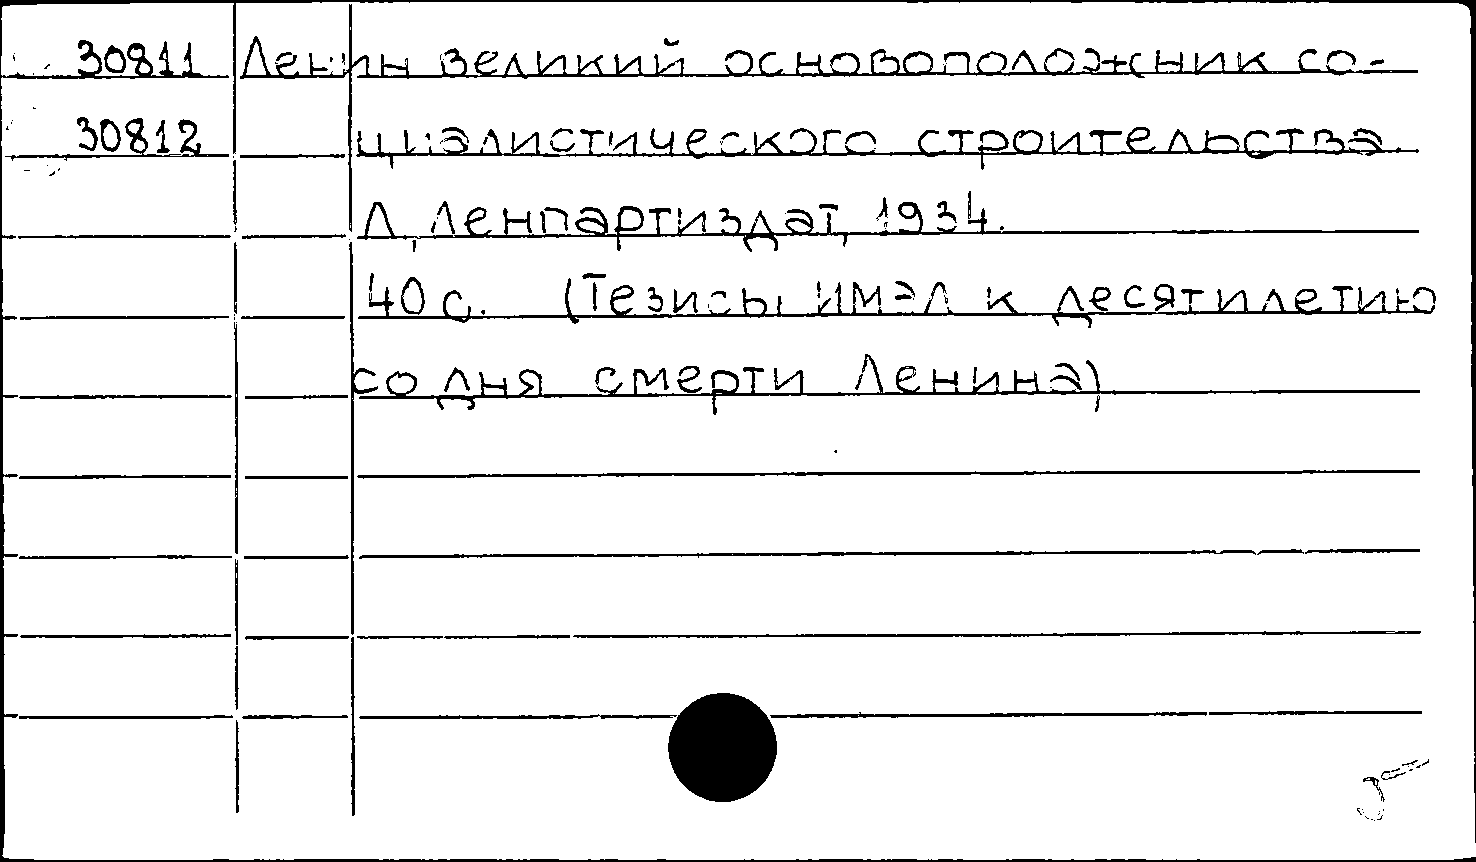 30811 Ленин великий основоположник со-
30812 циалистического строительства.
Л, Ленпартиздат, 1934.
40 с. (Тезисы ИМЭЛ к десятилетию
со дня смерти Ленина)
5